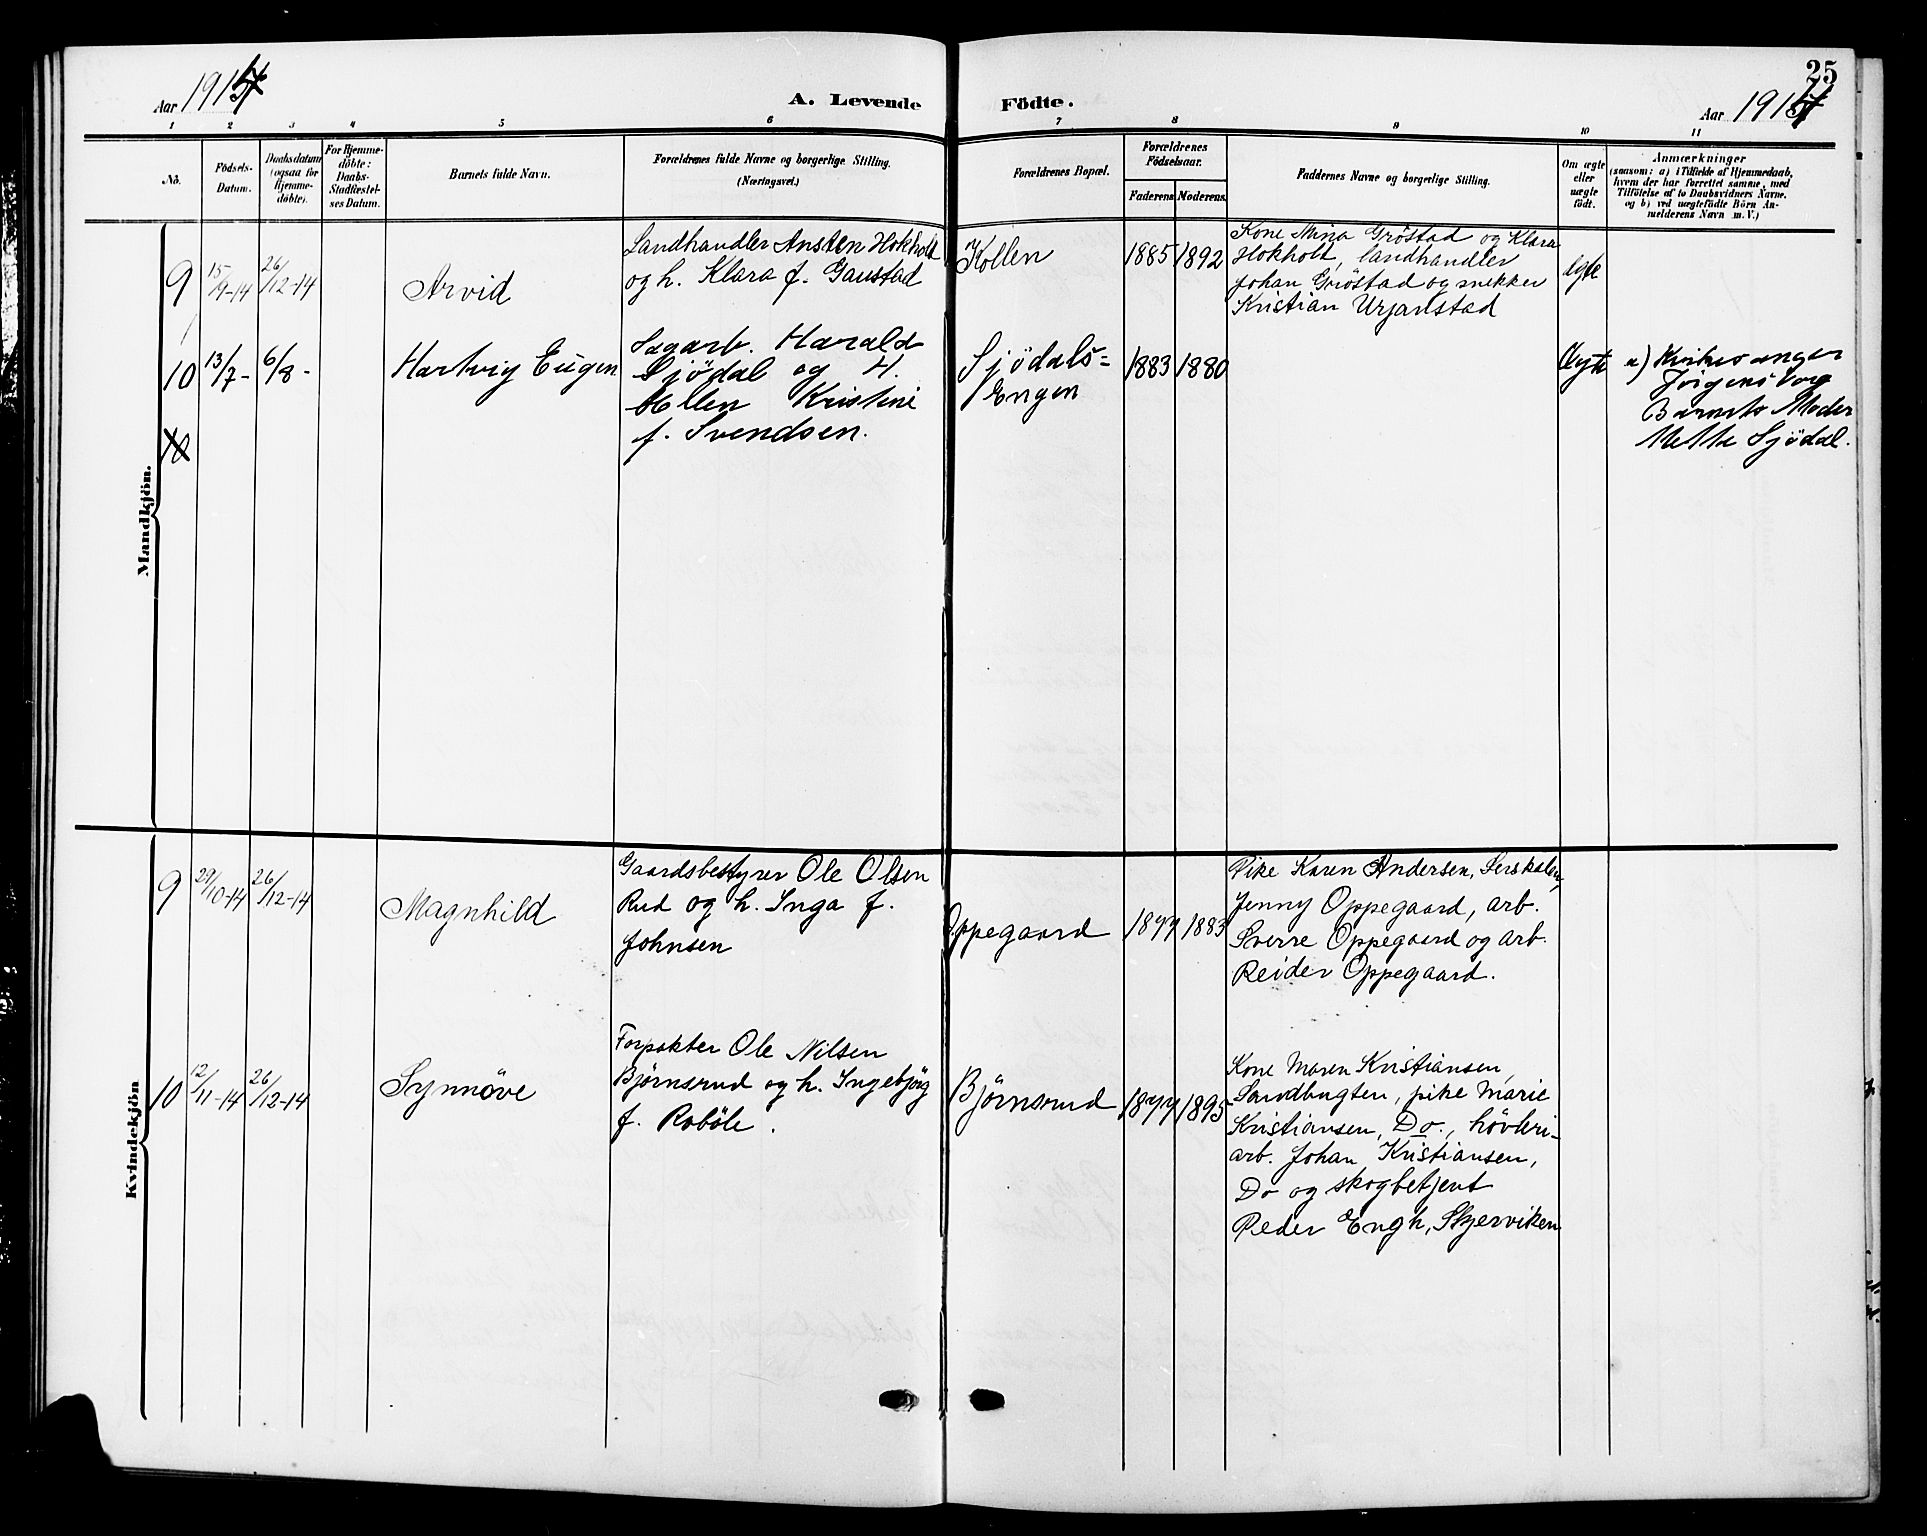 25
Aar 1914
A. Levende Födte.
Aar 1914
1 2 3 4 5 6 7 8 9 10 11
No.
Födsels-Datum.
Daabsdatum (ogsaa for Hjemme-döbte).
For Hjemme-döbte: Daabs-Stadfæstel-ses Datum.
Barnets fulde Navn.
Forældrenes fulde Navne og borgerlige Stilling.
(Næringsvei.)
Forældrenes Bopæl.
Forældrenes Födselsaar.
Faderens Moderens.
Faddernes Navne og borgerlige Stilling.
Om ægte eller uægte födt.
Anmærkninger
(saasom: a) i Tilfælde af Hjemmedaab,
hvem der har forrettet samme, med
Tilföielse af to Daabsvidners Navne.
og b) ved uægtefödte Börn An-
melderens Navn m. V.)
Mandkjön.
9 15/9-14 26/12-14 Arvid
Landhandler Ansten Hokholt
og h. Klara f. Gaustad
Kollen 1885 1892
Kone Mina Gröstad og Klara
Hokholt, landhandler
Johan Gröstad og snekker
Kristian Urjanstad
ægte
10 13/7- 6/8- Hartvig Eugen
Sagarb. Harald
Sjödal og H.
Ellen Kristine
f. Svendsen.
Sjödals=
Engen
1883 1880
Ægte
a)
Barnets Moder
Mette Sjödal.
10
Kvindekjön
9 29/10-14 26/12-14 Magnhild
Gaardsbestyrer Ole Olsen
Rud og h. Inga f.
Johnsen
Oppegaard 1877 1883
Pike Karen Andersen, Serskolen,
Jenny Oppegaard, arb.
Sverre Oppegaard og arb.
Reider Oppegaard.
10 12/11-14 26/12-14 Synnöve
Forpakter Ole Nilsen
Björnsrud og h. Ingebjörg
f. Roböle.
Björnsrud 1877 1895
Kone Maren Kristiansen,
Sandbugten, pike Marie
Kristiansen, Do., hövleri-
arb. Johan Kristiansen,
Do og skogbetjent
Peder Engh, Skjerviken